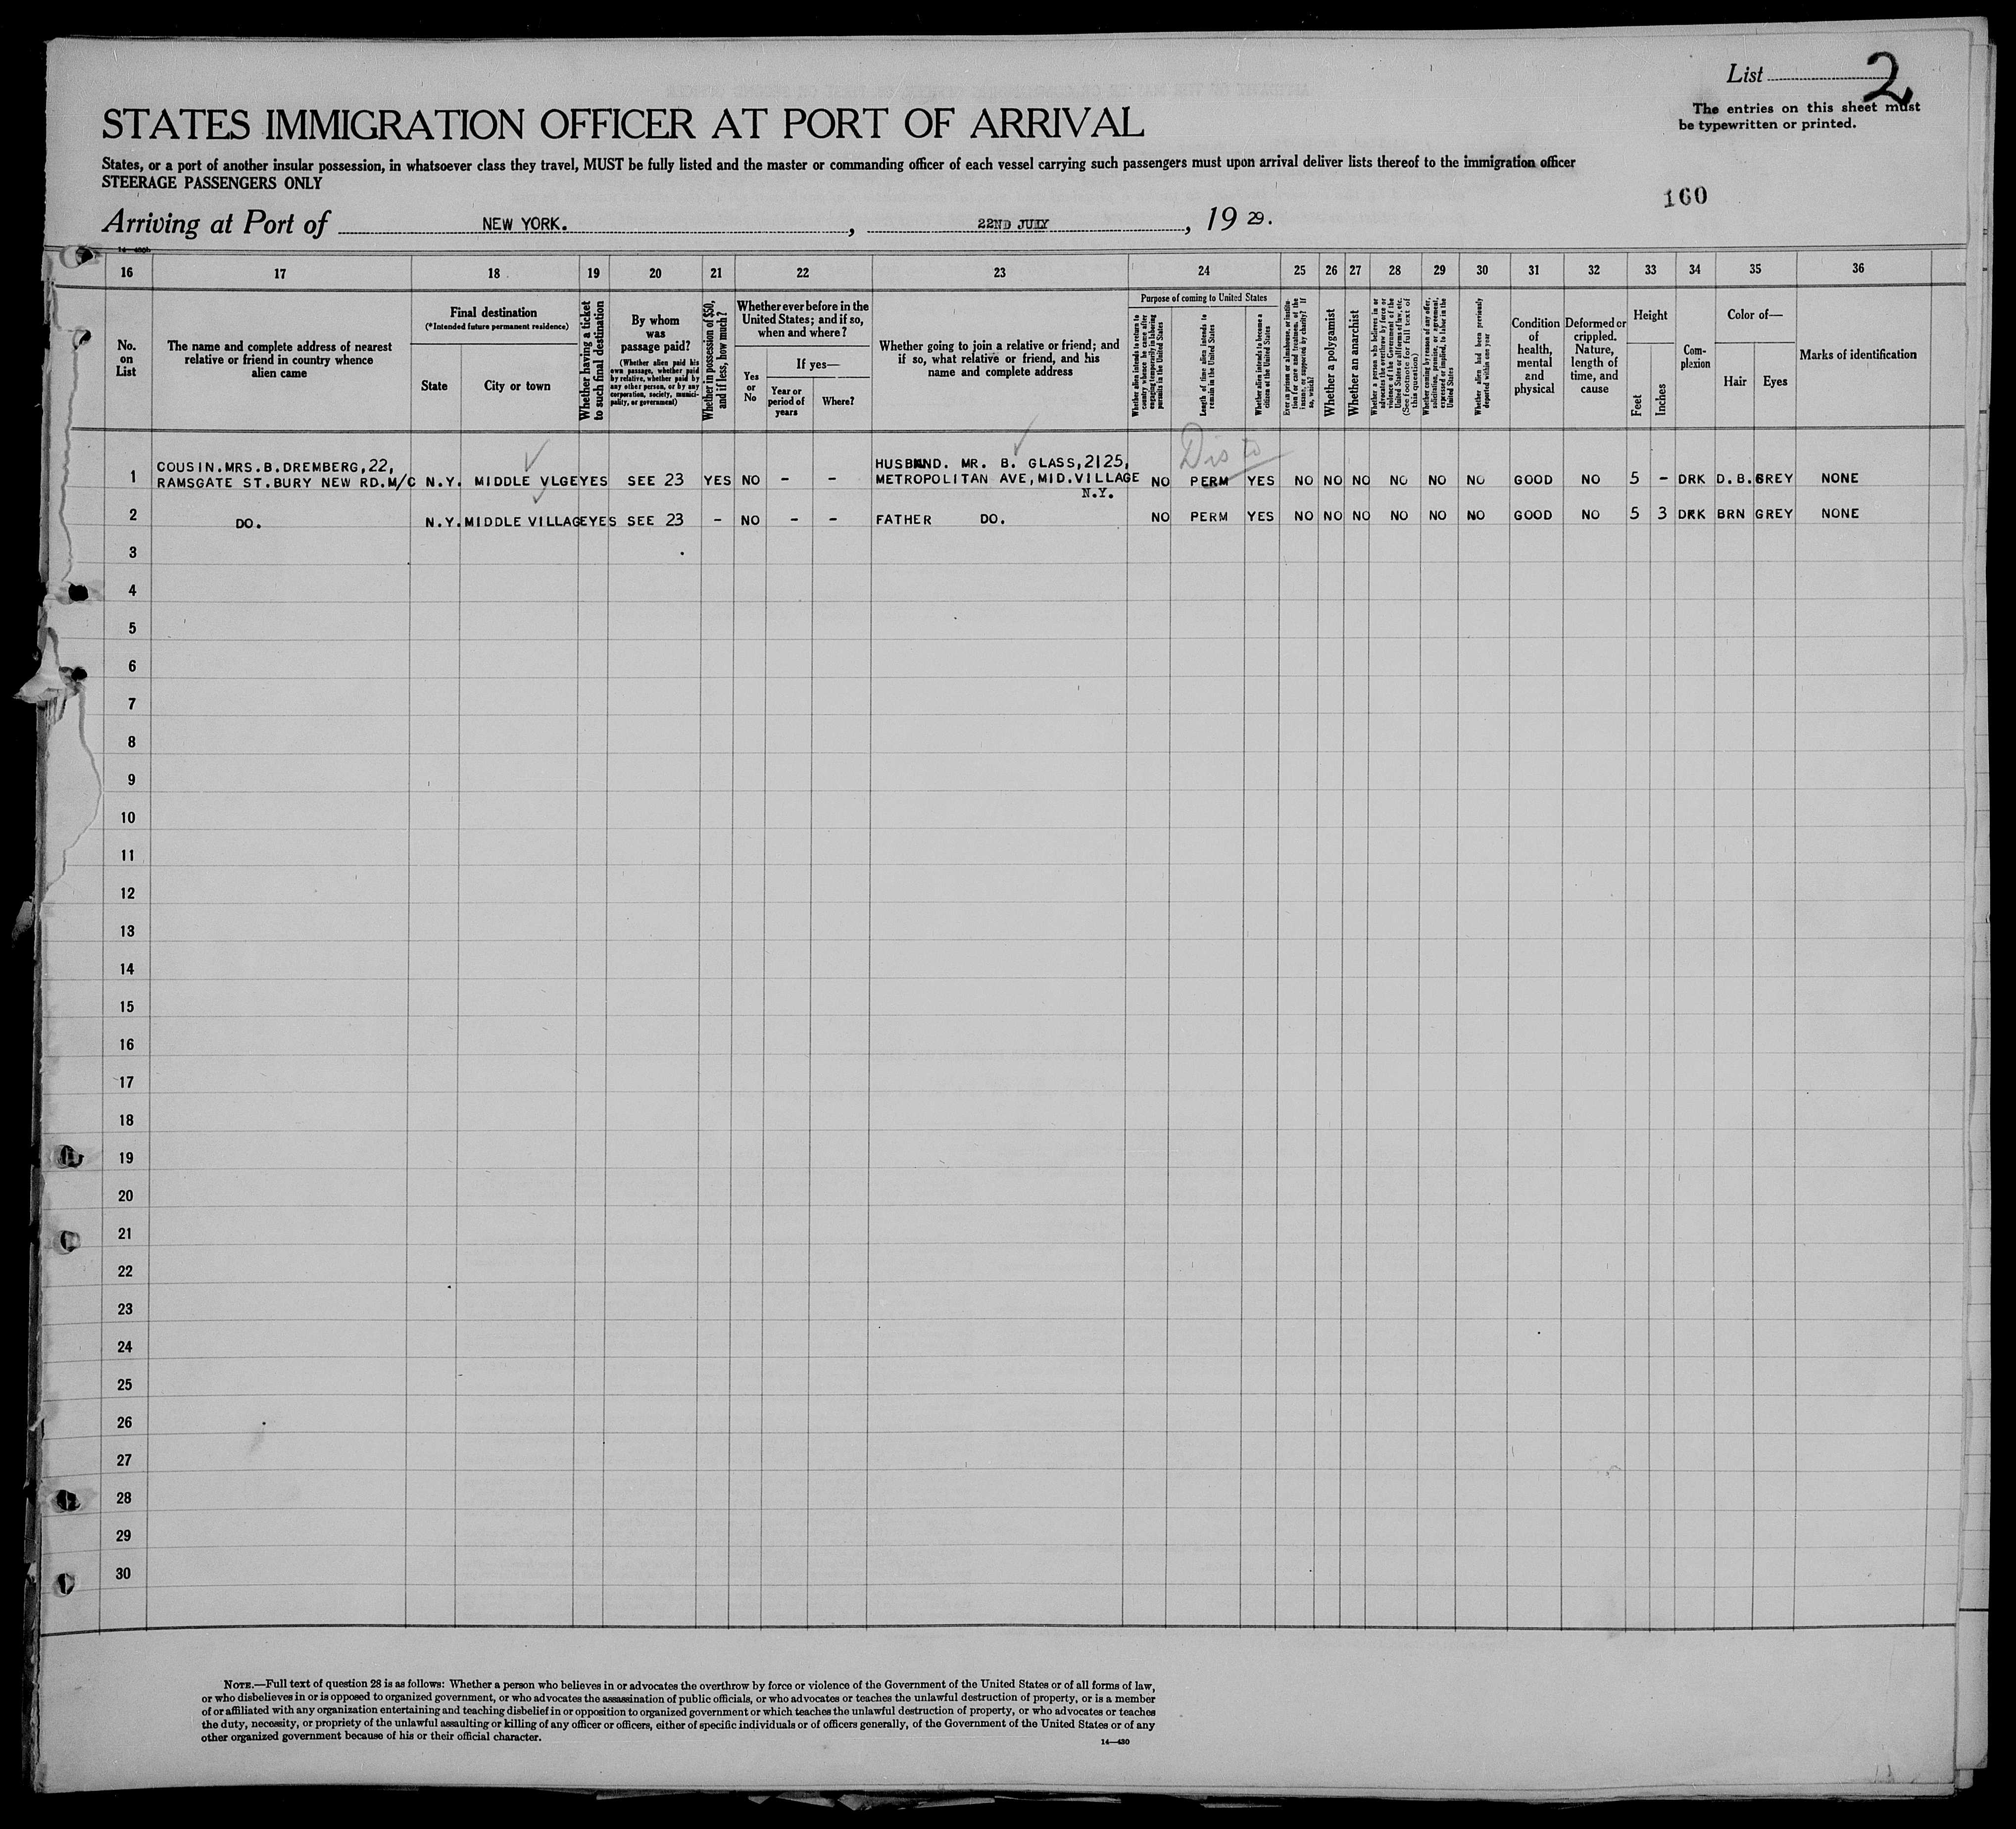 List 2
The entries on this sheet must
be typewritten or printed.
STATES IMMIGRATION OFFICER AT PORT OF ARRIVAL
States, or a port of another insular possession, in whatsoever class they travel, MUST be fully listed and the master or commanding officer of each vessel carrying such passengers must upon arrival deliver lists thereof to the immigration officer
STEERAGE PASSENGERS ONLY
160
Arriving at Port of NEW YORK. , 22ND JULY , 19 29.
16 17 18 19 20 21 22 23 24 25 26 27 28 29 30 31 32 33 34 35 36
No.
on
List
The name and complete address of nearest
relative or friend in country whence
alien came
Final destination
(*Intended future permanent residence)
State
City or town
Whether having a ticket
to such final destination
By whom
was
passage paid?
(Whether alien paid his
own passage, whether paid
by relative, whether paid by
any other person, or by any
corporation, society, munici-
pality, or government)
Whether in possession of $50,
and if less, how much?
Whether ever before in the
United States; and if so,
when and where?
Yes
or
No
If yes—
Year or
period of
years
Where?
Whether going to join a relative or friend; and
if so, what relative or friend, and his
name and complete address
Purpose of coming to United States
Whether alien intends to return to
country whence he came after
engaging temporarily in laboring
pursuits in the United States
Length of time alien intends to
remain in the United States
Whether alien intends to become a
citizen of the United States
Ever in prison or almshouse, or institu-
tion for care and treatment of the
insane, or supported by charity? If
so, which?
Whether a polygamist
Whether an anarchist
Whether a person who believes in or
advocates the overthrow by force or
violence of the Government of the
United States or all forms of law, etc.
(See footnote for full text of
this question)
Whether coming by reason of any offer,
solicitation, promise, or agreement,
expressed or implied, to labor in the
United States
Whether alien had been previously
deported within one year
Condition
of
health,
mental
and
physical
Deformed or
crippled.
Nature,
length of
time, and
cause
Height
Feet
Inches
Com-
plexion
Color of—
Hair
Eyes
Marks of identification
1 COUSIN.MRS.B.DREMBERG,22,
RAMSGATE ST.BURY NEW RD.M/C N.Y. MIDDLE VLGE YES SEE 23 YES NO - - HUSBAND. MR. B. GLASS,2125,
METROPOLITAN AVE,MID.VILLAGE
N.Y. NO PERM YES NO NO NO NO NO NO GOOD NO 5 - DRK D.B. GREY NONE
2 DO. N.Y. MIDDLE VILLAGE YES SEE 23 - NO - - FATHER DO. NO PERM YES NO NO NO NO NO NO GOOD NO 5 3 DRK BRN GREY NONE
3
4
5
6
7
8
9
10
11
12
13
14
15
16
17
18
19
20
21
22
23
24
25
26
27
28
29
30
NOTE.—Full text of question 28 is as follows: Whether a person who believes in or advocates the overthrow by force or violence of the Government of the United States or of all forms of law,
or who disbelieves in or is opposed to organized government, or who advocates the assassination of public officials, or who advocates or teaches the unlawful destruction of property, or is a member
of or affiliated with any organization entertaining and teaching disbelief in or opposition to organized government or which teaches the unlawful destruction of property, or who advocates or teaches
the duty, necessity, or propriety of the unlawful assaulting or killing of any officer or officers, either of specific individuals or of officers generally, of the Government of the United States or of any
other organized government because of his or their official character.
14—430